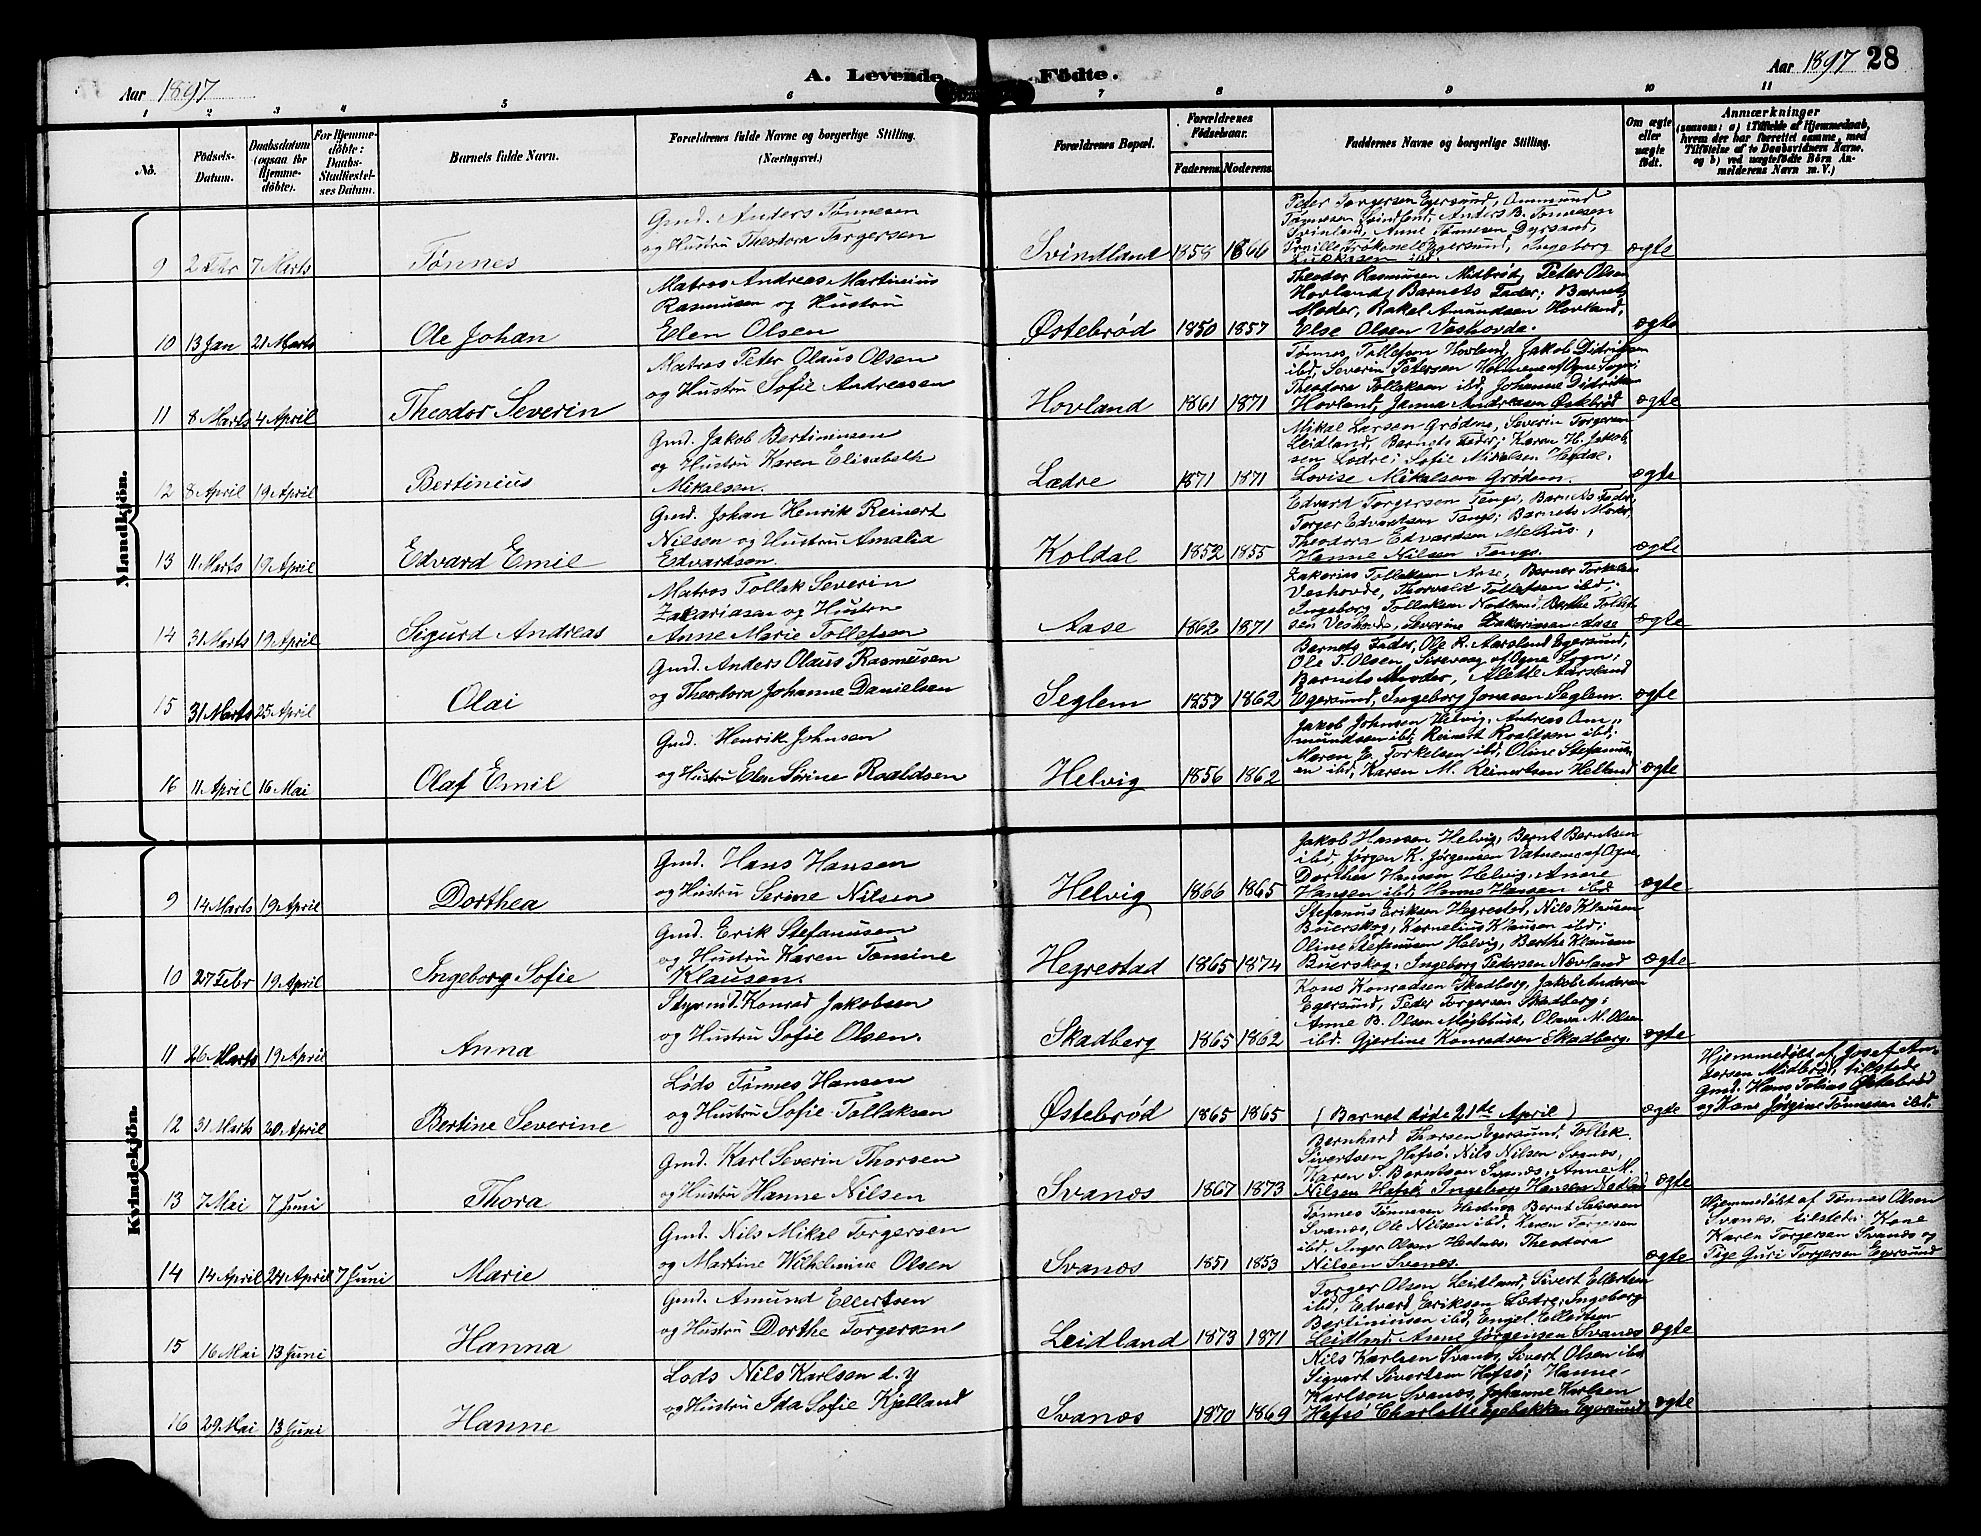 Aar 1897
A. Levende Födte.
Aar 1897 28
1 2 3 4 5 6 7 8 9 10 11
No.
Födsels-Datum.
Daabsdatum (ogsaa for Hjemmedöbte).
For Hjemmedöbte: Daabs-Stadfæstelses Datum.
Barnets fulde Navn.
Forældrenes fulde Navne og borgerlige Stilling. (Næringsvei.)
Forældrenes Bopæl.
Forældrenes Födselsaar.
Faderens. Moderens.
Faddernes Navne og borgerlige Stilling.
Om ægte eller uægte födt.
Anmærkninger
(saasom: a) i Tilfælde af Hjemmedaab, hvem der har forrettet samme, med Tilföielse af to Daabsvidners Navne, og b) ved uægtefödte Börn Anmelderens Navn m. V.)
Mandkjön.
Gmd. Anders Tønnesen
og Hustru Theodora Torgersen
9 2 Febr 7 Marts Tønnes Svindland 1858 1866 ægte
Peter Torgersen Egersund, Ommund
Tønnesen Svindland, Anders B. Tønnesen
Svinland, Anne Tønnesen
Egersund, Ingeborg
Matros Andreas Martinius
Rasmusen og Hustru
Elen Olsen
10 13 Jan 21 Marts Ole Johan Østebrød 1850 1857 ægte
Theodor Rasmusen Midbrød, Peter Olsen
Hovland, Barnets Fader; Barnets
Moder, Rakel Amundsen Hovland,
Else Olsen Veshovda.
Matros Peter Olaus Olsen
og Hustru Sofie Andreasen
11 8 Marts 4 April Theodor Severin Hovland 1861 1871 ægte
Tønnes Tollefsen Hovland, Jakob Didriksen
ibd, Severin Petersen af Ogne Sogn;
Theodora Tolleksen ibd, Johanne Didriksen
Hovland, Janna Andreasen Østebrød
Gmd. Jakob Bertiniusen
og Hustru Karen Elisabeth
Mikalsen.
12 8 April 19 April Bertinius Lædre 1871 1871 ægte
Mikal Larsen Grødeme, Severin Torgersen
Leidland, Barnets Fader; Karen H. Jakob-
sen Lædre; Sofie Mikalsen
Lovise Mikalsen Grødem.
Gmd. Johan Henrik Reinert
Nilsen og Hustru Amalia
Edvardsen.
13 11 Marts 19 April Edvard Emil Koldal 1852 1855 ægte
Edvard Torgersen Tengs, Barnets Fader,
Torger Edvardsen Tengs; Barnets Moder,
Theodora Edvardsen Melhus,
Hanne Nilsen Tengs.
Matros Tollak Severin
Zakariasen og Hustru
Anne Marie Tollefsen
14 31 Marts 19 April Sigurd Andreas Aase 1862 1871 ægte
Zakarias Tollaksen Aase, Berner Torkelsen
Veshovde, Thorvald Tollefsen ibd;
Ingeborg Tollaksen Nodland, Berthe Tollef-
sen Veshovde, Severine Zakariasen Aase
Gmd. Anders Olaus Rasmusen
og Theodora Johanne Danielsen
15 31 Marts 25 April Olai Seglem 1857 1862 ægte
Barnets Fader, Ole R. Aarsland Egersund,
Ole T. Olsen, Sirevaag af Ogne Sogn;
Barnets Moder, Alette Aarsland
Egersund, Ingeborg Jonasen Seglem.
Gmd. Henrik Johnsen
og Hustru Elen Sørine Roaldsen
16 11 April 16 Mai Olaf Emil Helvig 1856 1862 ægte
Jakob Johnsen Helvig, Andreas Om-
mundsen ibd, Reinert Roaldsen ibd;
Maren E. Torkelsen ibd, Oline Stefanus-
en ibd, Karen M. Reinertsen Helland
Kvindekjön.
Gmd. Hans Hansen
og Hustru Serine Nilsen
9 14 Marts 19 April Dorthea Helvig 1866 1865 ægte
Jakob Hansen Helvig, Bernt Berntsen
ibd, Jørgen K. Jørgensen Vatnemo af Ogne,
Dorthea Hansen Helvig, Anne
Hansen ibd; Hanne Hansen ibd
Gmd. Erik Stefanusen
og Hustru Karen Tomine
Klausen.
10 27 Febr 19 April Ingeborg Sofie Hegrestad 1865 1874 ægte
Stefanus Eriksen Hegrestad, Nils Klausen
Buerskog, Kornelius Klausen ibd;
Oline Stefanusen Helvig, Berthe Klausen
Buerskog, Ingeborg Pedersen Nævland
Styrmd. Konrad Jakobsen
og Hustru Sofie Olsen.
11 26 Marts 19 April Anna Skadberg 1865 1862 ægte
Kons Konradsen Skadberg, Jakob Andersen
Egersund, Peder Torgersen Skadberg;
Anne B. Olsen Møglebust, Olava M. Olsen
ibd. Gjertine Konradsen Skadberg.
Lods Tønnes Hansen
og Hustru Sofie Tollaksen
12 31 Marts 20 April Bertine Severine Østebrød 1865 1865 (Barnet døde 21de April) ægte
Hjemmedøbt af Josef An-
dersen Midbrød, tilstede
Gmd. Hans Tobias Østebrød
og Kone Jørgine Tønnesen ibd.
Gmd. Karl Severin Thorsen
og Hustru Hanne Nilsen
13 7 Mai 7 Juni Thora Svanæs 1867 1873 ægte
Bernhard Thorsen Egersund, Tollak
Sivertsen Hafsø, Nils Nilsen Svanæs,
Karen S. Berntsen Svanæs, Anne M.
Nilsen Hafsø, Ingeborg Hansen
Gmd. Nils Mikal Torgersen
og Martine Wilhelmine Olsen
14 14 April 24 April 7 Juni Marie Svanæs 1851 1853 ægte
Tønnes Tønnesen Hestnes, Bernt
Svanæs, Ole Nilsen ibd, Karen Torgersen
ibd. Inger Olsen Hestnes, Theodora
Nilsen Svanæs.
Hjemmedøbt af Tønnes Olsen
Svanæs, tilstede: Kone
Karen Torgersen Svanæs og
Pige Guri Torgersen Egersund
Gmd. Amund Ellertsen
og Hustru Dorthe Torgersen
15 16 Mai 13 Juni Hanna Leidland 1873 1871 ægte
Torger Olsen Leidland, Sivert Ellertsen
ibd, Edvard Eriksen Lædre; Ingeborg
Bertiniusen ibd, Engel Ellertsen
Leidland, Anne Jørgensen Svanæs
Lods Nils Karlsen d. y
og Hustru Ida Sofie Kjølland
16 29 Mai 13 Juni Hanne Svanæs 1870 1869 ægte
Nils Karlsen Svanæs, Sivert Olsen ibd
Sigvart Sivertsen Hafsø; Hanne
Karlson Svanæs, Johanne Karlsen
Hafsø Charlotte Egebakken Egersund